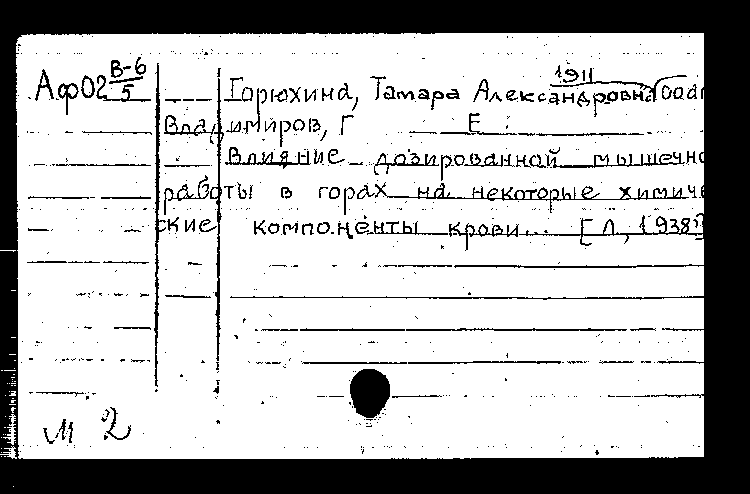 Аф02 В-6/5
1911
Горюхина, Тамара Александровна
Владимиров, Г Е :
Влияние дозированной мышечно
работы в горах на некоторые химиче
ские компоненты крови... [Л, 1938?]
М 2